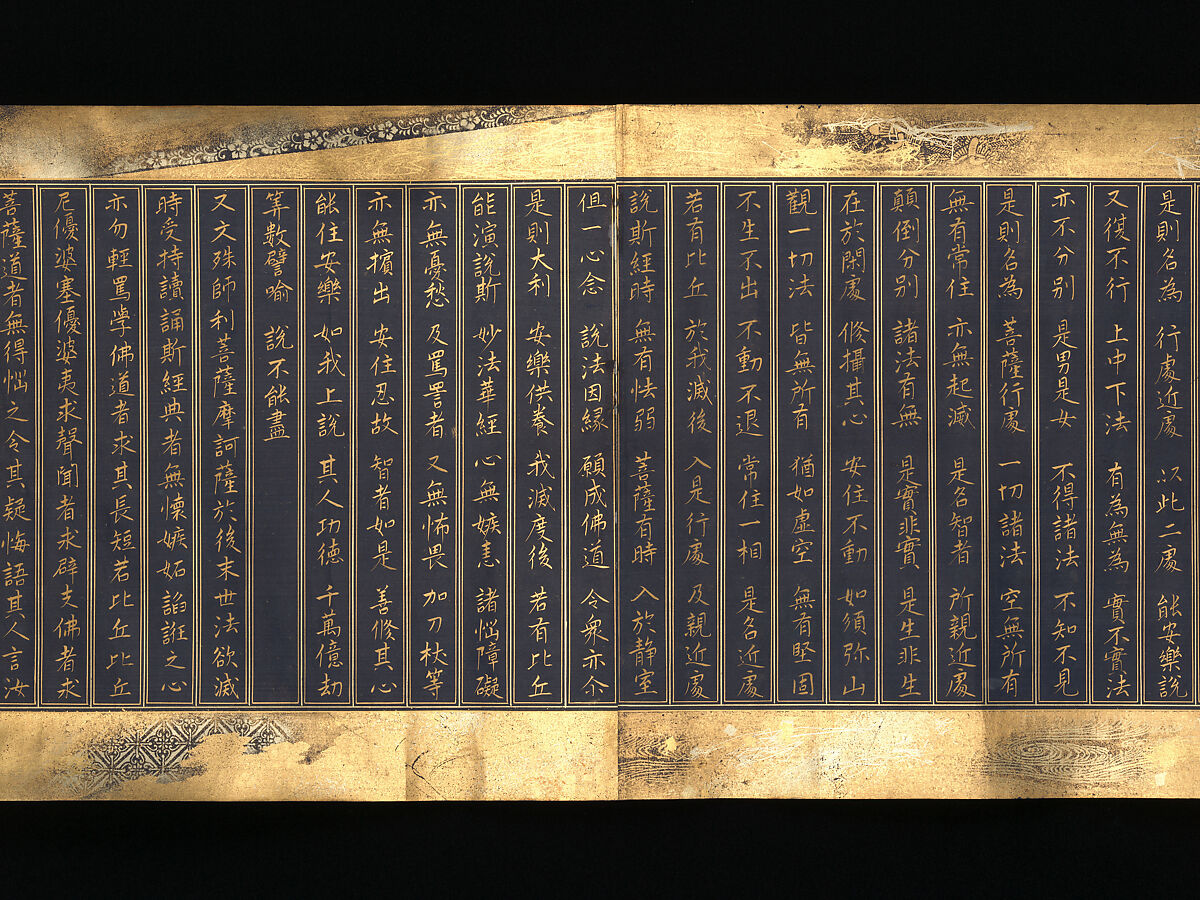 是則名為 行處近處 以此二處 能安樂說
又復不行 上中下法 有為無為 實不實法
亦不分別 是男是女 不得諸法 不知不見
是則名為 菩薩行處 一切諸法 空無所有
無有常住 亦無起滅 是名智者 所親近處
顛倒分別 諸法有無 是實非實 是生非生
在於閑處 修攝其心 安住不動 如須弥山
觀一切法 皆無所有 猶如虛空 無有堅固
不生不出 不動不退 常住一相 是名近處
若有比丘 於我滅後 入是行處 及親近處
說斯經時 無有怯弱 菩薩有時 入於静室
但一心念 說法因縁 願成佛道 令衆亦尒
是則大利 安樂供養 我滅度後 若有比丘
能演說斯 妙法華經 心無嫉恚 諸惱障礙
亦無憂愁 及罵詈者 又無怖畏 加刀杖等
亦無擯出 安住忍故 智者如是 善修其心
能住安樂 如我上說 其人功德 千萬億劫
筭數譬喻 說不能盡
又文殊師利菩薩摩訶薩於後末世法欲滅
時受持讀誦斯經典者無懷嫉妬諂誑之心
亦勿輕罵學佛道者求其長短若比丘比丘
尼優婆塞優婆夷求聲聞者求辟支佛者求
菩薩道者無得惱之令其疑悔語其人言汝